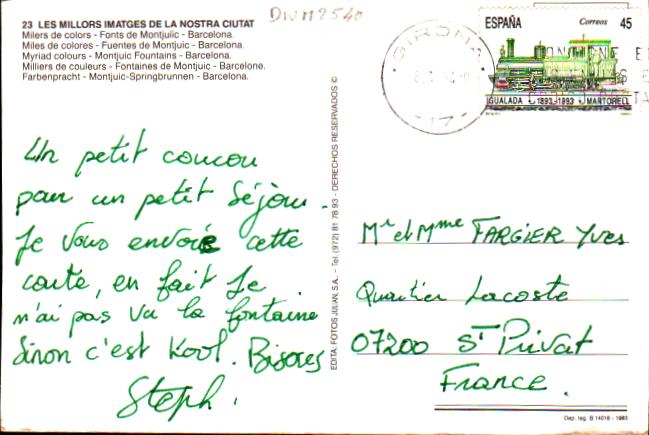 23 LES MILLORS IMATGES DE LA NOSTRA CIUTAT
Milers de colors - Fonts de Montjuïc - Barcelona.
Miles de colores - Fuentes de Montjuic - Barcelona.
Myriad colours - Montjuic Fountains - Barcelona.
Milliers de couleurs - Fontaines de Montjuic - Barcelona.
Farbenpracht - Montjuic-Springbrunnen - Barcelona.
Un petit coucou
pour un petit séjour.
Je vous envoie cette
carte, en fait je
n'ai pas vu la fontaine
sinon c'est kool. Bisores
Steph.
EDITA: FOTOS JULIAN, S.A. - Tel. (972) 81 78 93 - DERECHOS RESERVADOS ©
DIVM2540
GIRONA
ESPAÑA Correos 45
IGUALADA 1893-1993 MARTORELL
Mr et Mme FARGIER Yves
Quartier Lacoste
07200 St Privat
France.
Dep. leg. B 14016 - 1993